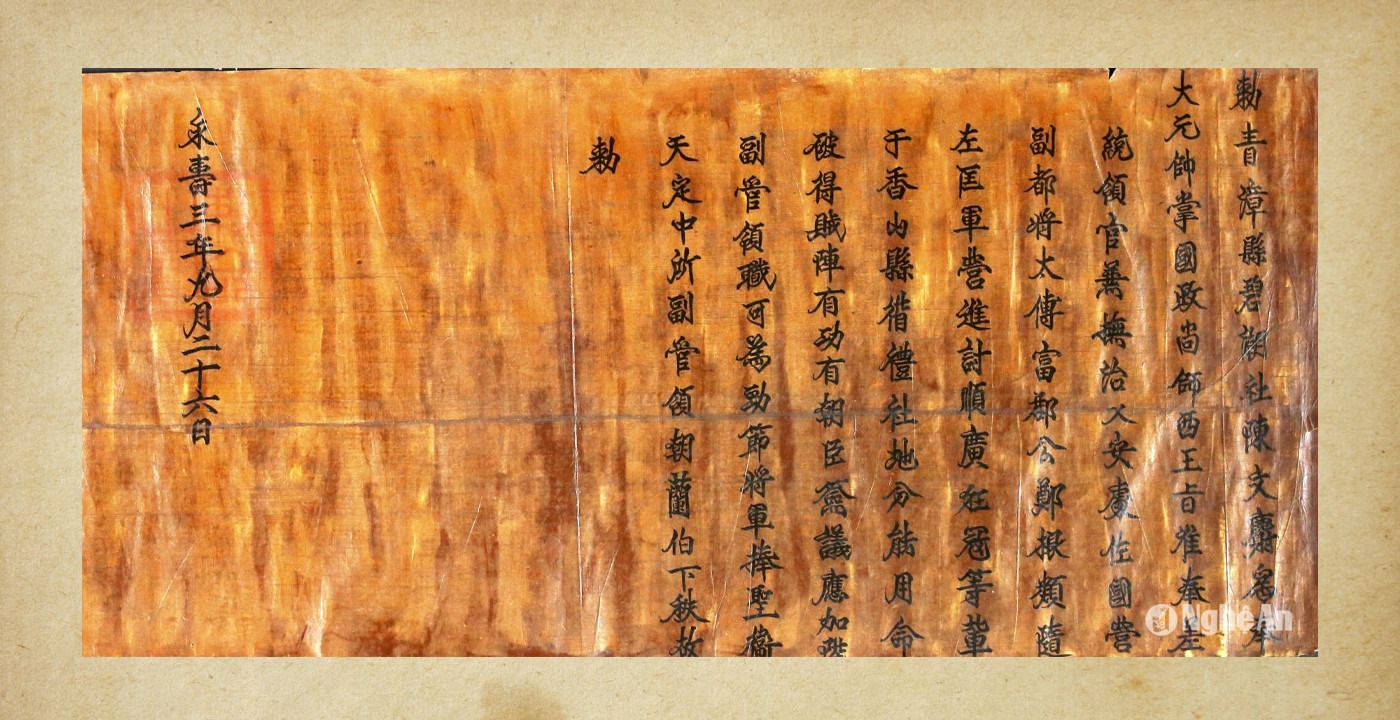 勅青漳縣碧社陳文奉
大元帥掌國政尚師西王旨准奉差
統領官兼撫治乂安處佐國營
副都將太傅富郡公鄭根類隨
左匡軍營進討順廣狂寇等輩
于香山縣循禮社地分能用命
破得賊陣有功有朝臣僉議應加陞
副管領職可為勁節將軍捧聖衛
天定中所副管領朝蘭伯下秩故
勅
永壽三年九月二十六日
Nghệ An